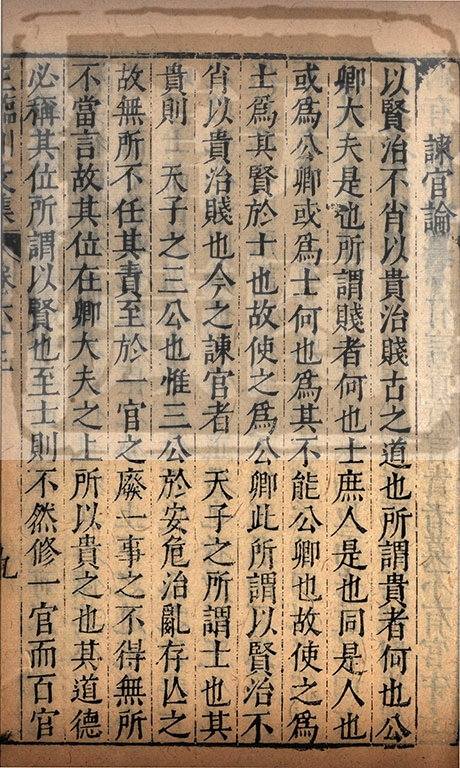 諫官論
以賢治不肖以貴治賤古之道也所謂貴者何也公
卿大夫是也所謂賤者何也士庶人是也同是人也
或爲公卿或爲士何也爲其不能公卿也故使之爲
士爲其賢於士也故使之爲公卿此所謂以賢治不
肖以貴治賤也今之諫官者 天子之所謂士也其
貴則 天子之三公也惟三公於安危治亂存亾之
故無所不任其責至於一官之廢一事之不得無所
不當言故其位在卿大夫之上所以貴之也其道德
必稱其位所謂以賢也至士則不然修一官而百官
臨川文集 卷六十三 九